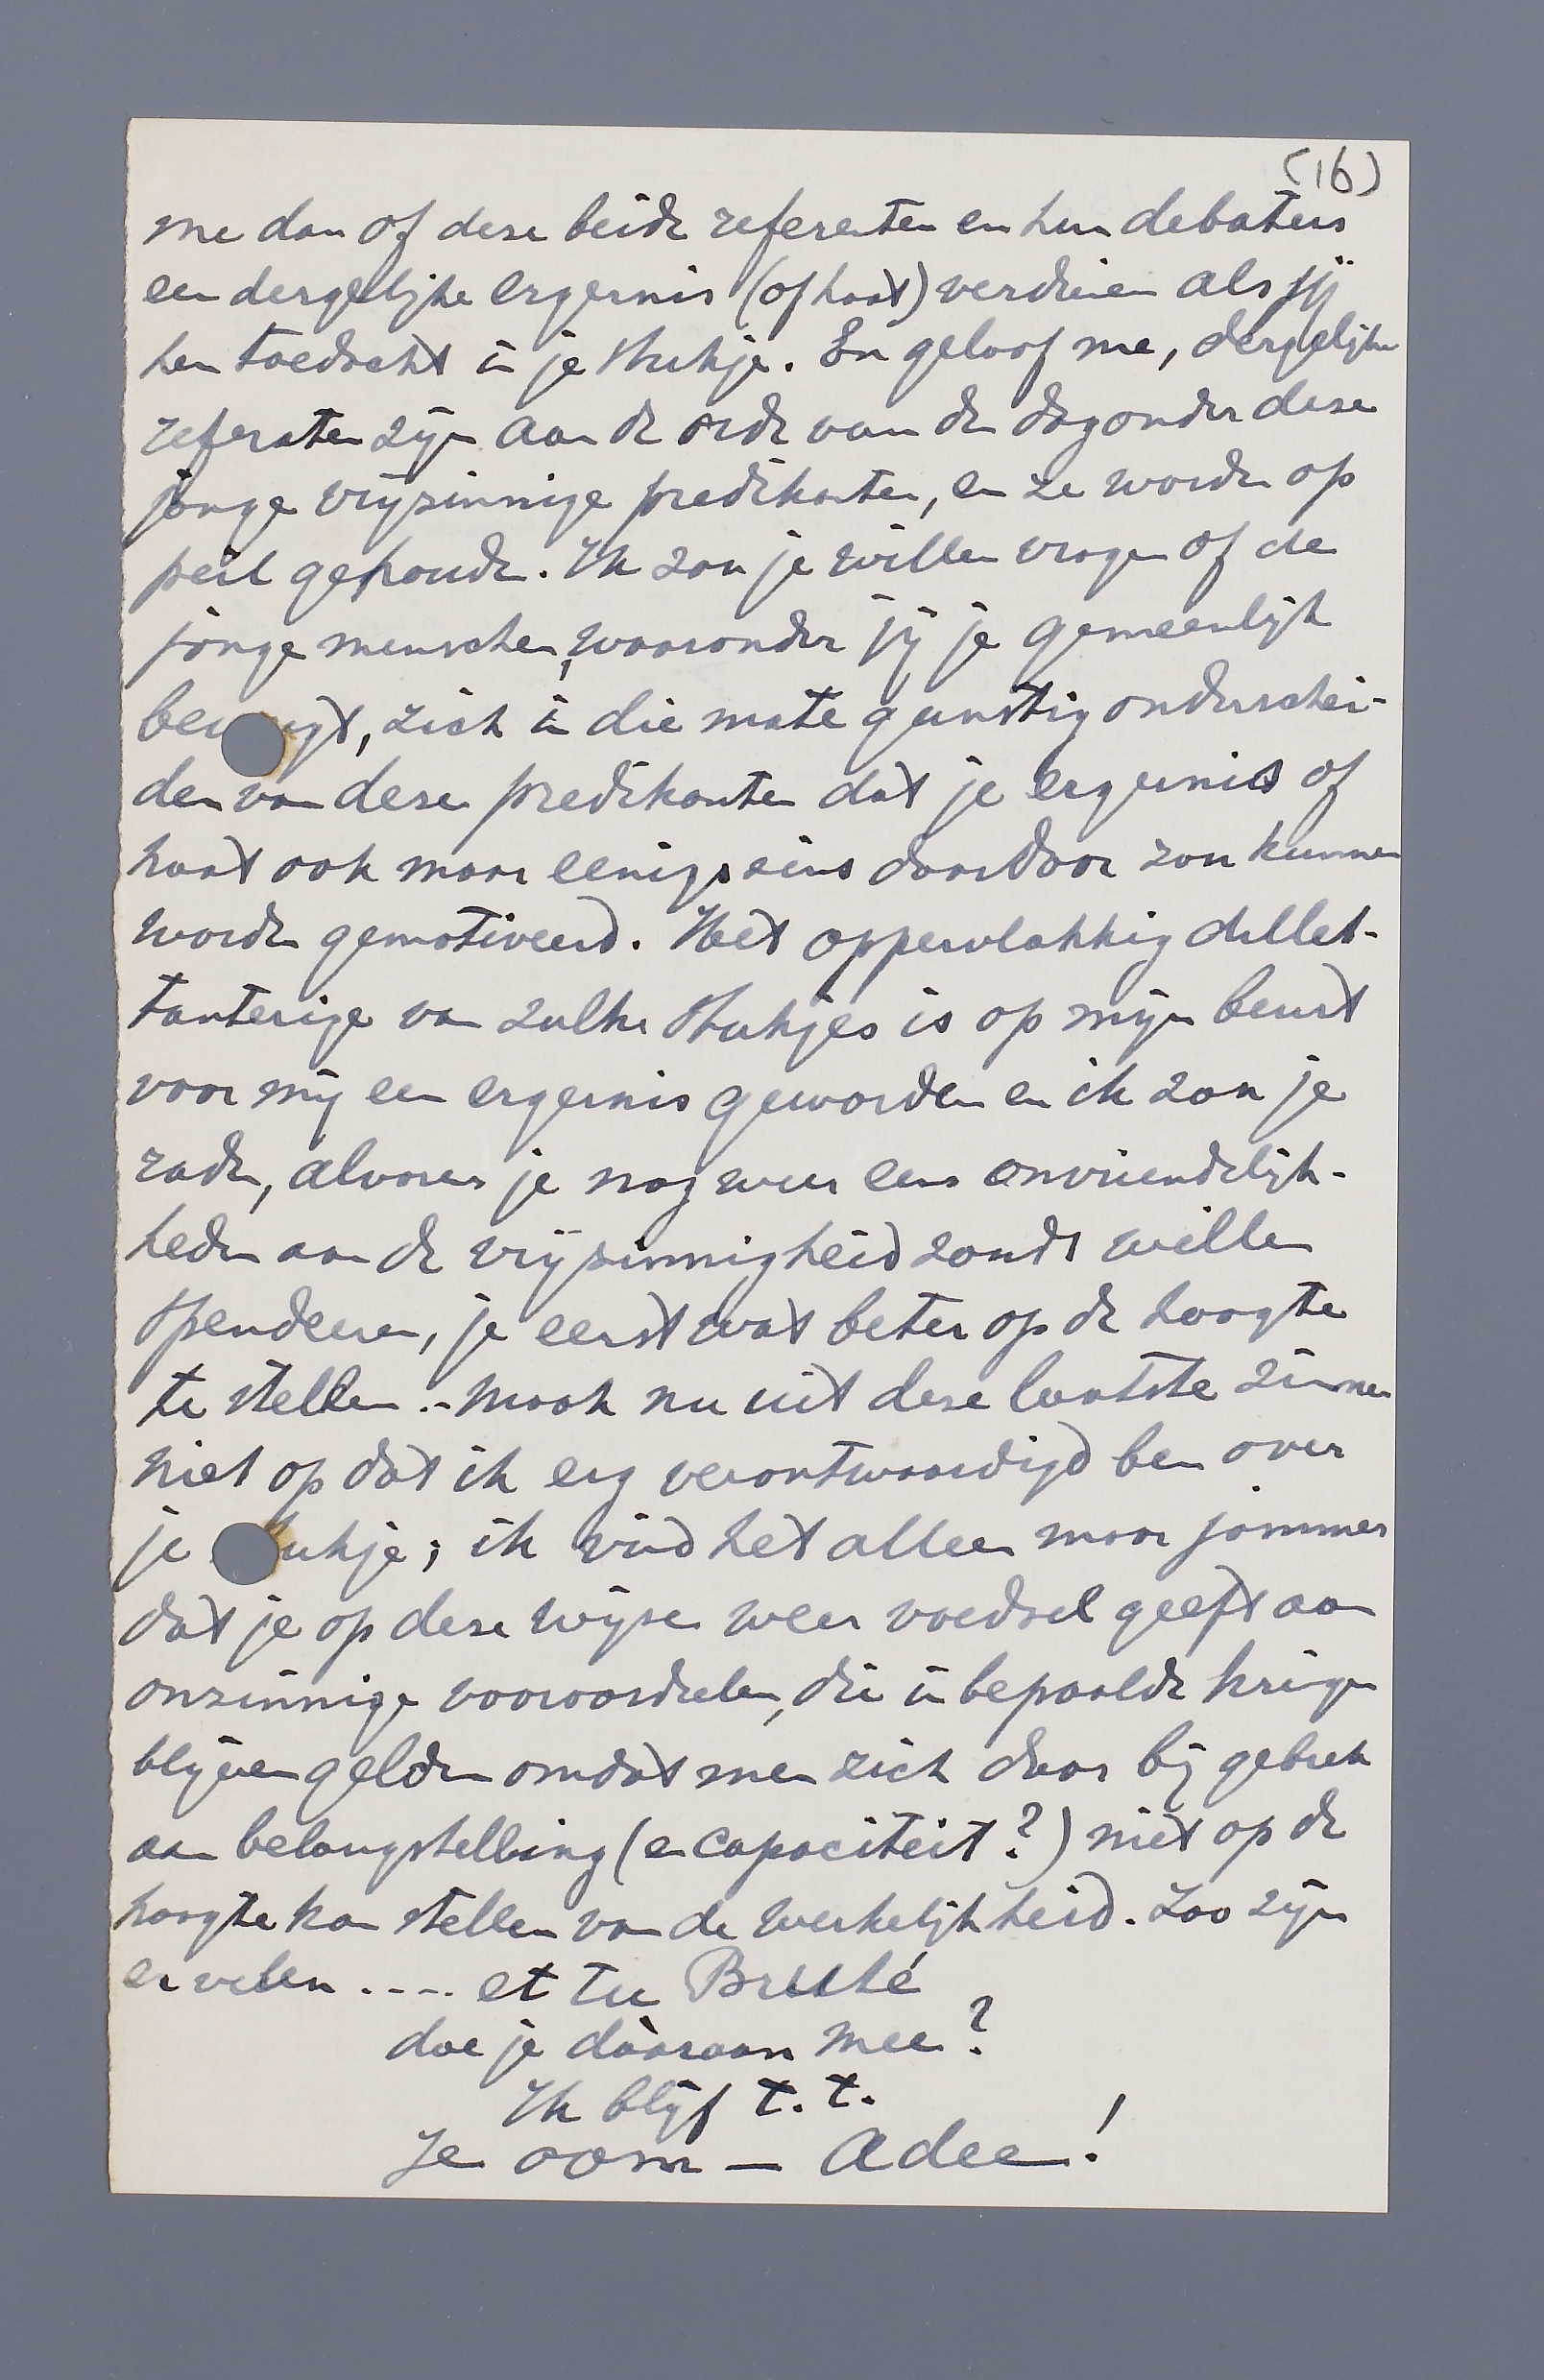 (16)
me dan of deze beide referenten en hun debaters
een dergelijke ergernis (of haat) verdienen als jij
hen toedacht in je stukje. En geloof me, dergelijke
referaten zijn aan de orde van de dag onder deze
jonge vrijzinnige predikanten, en ze worden op
peil gehouden. Ik zou je willen vragen of de
jonge menschen, waaronder jij je gemeenlijk
beweegt, zich in die mate gunstig onderschei-
den van deze predikanten dat je ergernis of
haat ook maar eenigszins daardoor zou kunnen
worden gemotiveerd. Het oppervlakkig dillet-
tanterige van zulke stukjes is op mijn beurt
voor mij een ergernis geworden en ik zou je
raden, alvorens je nog weer eens onvriendelijk-
heden aan de vrijzinnigheid zoudt willen
spendeeren, je eerst wat beter op de hoogte
te stellen.- Maak nu uit deze laatste zinnen
niet op dat ik erg verontwaardigd ben over
je stukje; ik vind het alleen maar jammer
dat je op deze wijze weer voedsel geeft aan
onzinnige vooroordeelen, die in bepaalde kringen
blijven gelden omdat men zich daar bij gebrek
aan belangstelling (en capaciteit?) niet op de
hoogte kan stellen van de werkelijkheid. Zoo zijn
er velen .... et tu Bruté
doe je dààraan mee?
Ik blijf t.t.
Je oom — Adee!